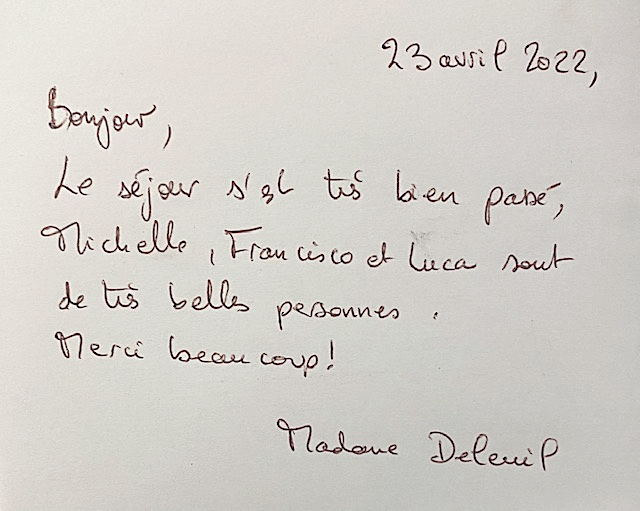 23 avril 2022,
Bonjour,
Le séjour s'est très bien passé,
Michelle, Francisco et Luca sont
de très belles personnes.
Merci beaucoup!
Madame Deleuil